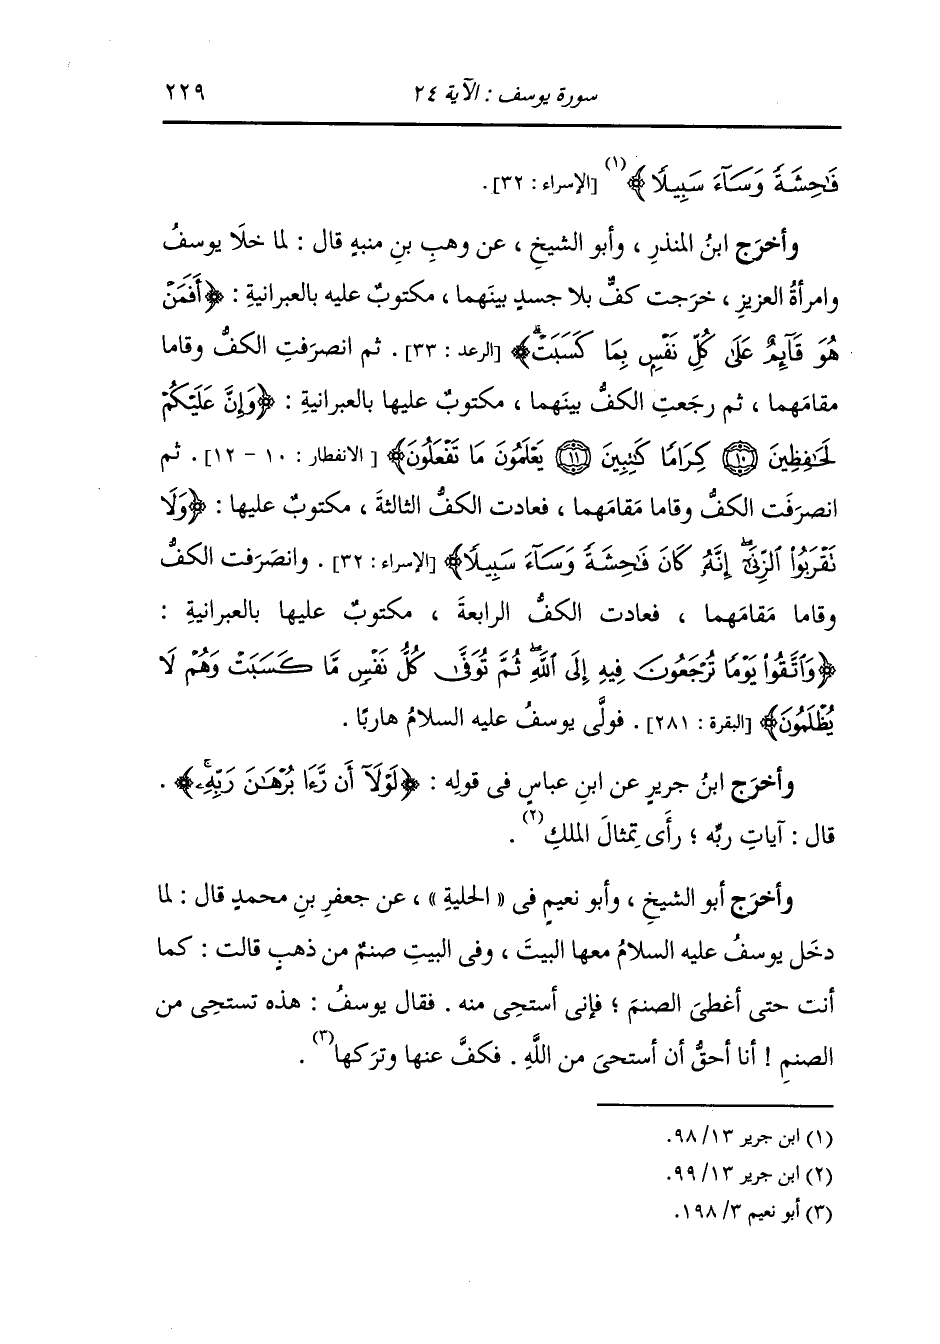 سورة يوسف : الآية ٢٤ ٢٢٩
فَٰحِشَةً وَسَآءَ سَبِيلًا﴾(١) [الإسراء : ٣٢] .
وأخرَج ابنُ المنذرِ ، وأبو الشيخِ ، عن وهبِ بنِ منبهٍ قال : لما خلَا يوسفُ
وامرأةُ العزيزِ ، خرَجت كفٌّ بلا جسدٍ بينَهما ، مكتوبٌ عليه بالعبرانيةِ : ﴿أَفَمَنْ
هُوَ قَآئِمٌ عَلَىٰ كُلِّ نَفْسٍۭ بِمَا كَسَبَتْۗ﴾ [الرعد : ٣٣] . ثم انصرَفتِ الكفُّ وقاما
مقامَهما ، ثم رجَعتِ الكفُّ بينَهما ، مكتوبٌ عليها بالعبرانيةِ : ﴿وَإِنَّ عَلَيْكُمْ
لَحَٰفِظِينَ ﴿١٠﴾ كِرَامًا كَٰتِبِينَ ﴿١١﴾ يَعْلَمُونَ مَا تَفْعَلُونَ﴾ [ الانفطار : ١٠ - ١٢] . ثم
انصرَفَت الكفُّ وقاما مَقامَهما ، فعادت الكفُّ الثالثةَ ، مكتوبٌ عليها : ﴿وَلَا
نَقْرَبُوا۟ ٱلزِّنَىٰٓۖ إِنَّهُۥ كَانَ فَٰحِشَةً وَسَآءَ سَبِيلًا﴾ [الإسراء : ٣٢] . وانصَرَفت الكفُّ
وقاما مَقامَهما ، فعادت الكفُّ الرابعةَ ، مكتوبٌ عليها بالعبرانيةِ :
﴿وَٱتَّقُوا۟ يَوْمًا تُرْجَعُونَ فِيهِ إِلَى ٱللَّهِۖ ثُمَّ تُوَفَّىٰ كُلُّ نَفْسٍ مَّا كَسَبَتْ وَهُمْ لَا
يُظْلَمُونَ﴾ [البقرة : ٢٨١] . فولَّى يوسفُ عليه السلامُ هاربًا .
وأخرَج ابنُ جريرٍ عن ابنِ عباسٍ فى قولِه : ﴿لَوْلَآ أَن رَّءَا بُرْهَٰنَ رَبِّهِۦۚ﴾ .
قال : آياتِ ربِّه ؛ رأَى تِمثالَ الملكِ(٢) .
وأخرَج أبو الشيخِ ، وأبو نعيمٍ فى « الحليةِ » ، عن جعفرِ بنِ محمدٍ قال : لما
دخَل يوسفُ عليه السلامُ معها البيتَ ، وفى البيتِ صنمٌ من ذهبٍ قالت : كما
أنت حتى أغطىَ الصنمَ ؛ فإنى أستحِى منه . فقال يوسفُ : هذه تستحِى من
الصنمِ ! أنا أحقُّ أن أستحىَ من اللَّهِ . فكفَّ عنها وترَكها(٣) .
(١) ابن جرير ١٣/ ٩٨.
(٢) ابن جرير ١٣/ ٩٩.
(٣) أبو نعيم ٣/ ١٩٨.